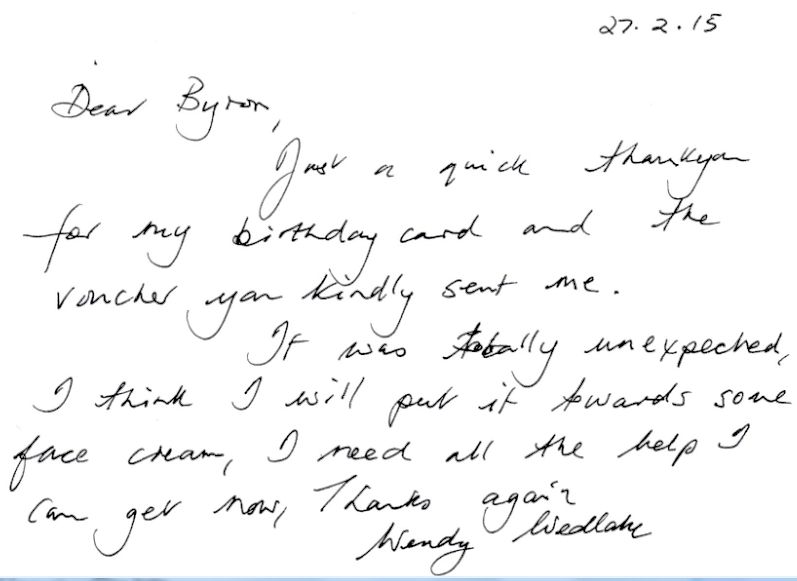 27.2.15
Dear Byron,
Just a quick thankyou
for my birthday card and the
voucher you kindly sent me.
It was totally unexpected,
I think I will put it towards some
face cream, I need all the help I
can get now, Thanks again
Wendy Wedlake